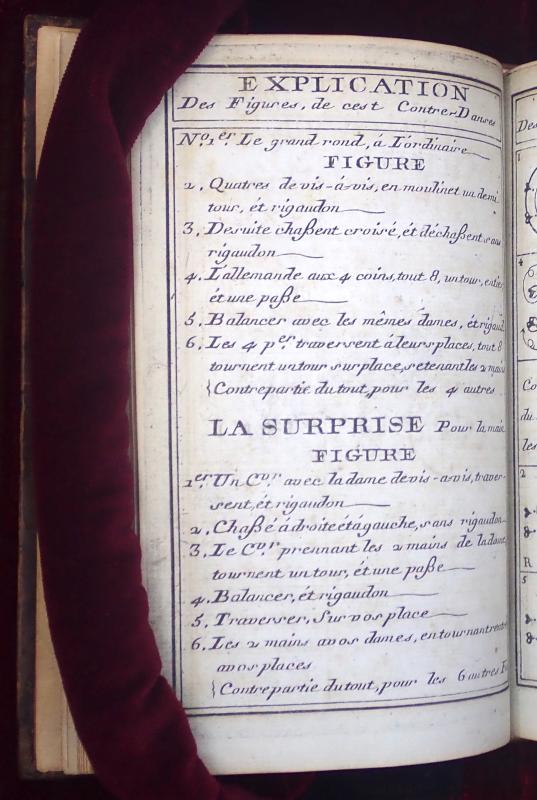 EXPLICATION
Des Figures, de cest Contre=Danses
N.o 1.er Le grand rond, á L'ordinaire
FIGURE
2. Quatres de vis-á-vis, en moulinet un demi
tour, ét rigaudon
3. De suite chaßent croisé, ét déchaßent sans
rigaudon
4. L'allemande aux 4 coins, tout 8, un tour, entier
ét une paße
5. Balancer avec les mêmes dames, ét rigaud
6. Les 4 p.er traversent á leurs places, tout 8
tournent un tour sur place, se tenant les 2 mains
{Contrepartie du tout, pour les 4 autres
LA SURPRISE Pour la main
FIGURE
1.er Un Cv.r avec la dame de vis-a-vis, traver-
sent, ét rigaudon
2. Chaßé á droite ét á gauche, sans rigaudon
3. Le Cv.r prennant les 2 mains de la dame
tournent un tour, ét une paße
4. Balancer, ét rigaudon
5. Traverser, Sur vos place
6. Les 2 mains a vos dames, en tournant
a vos places
{Contrepartie du tout, pour les 6 autres
Des
1
4
Co
du
les
2
R
5